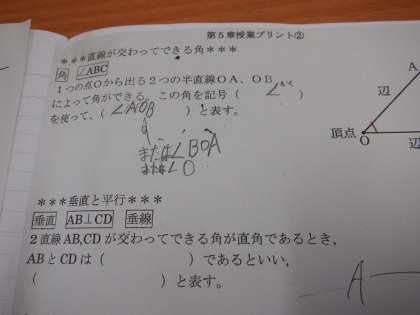 第5章授業プリント②
***直線が交わってできる角***
角 ∠ABC
1つの点Oから出る2つの半直線OA、OB
によって角ができる。この角を記号（ ∠ ）
を使って、（ ∠AOB ）と表す。
または∠BOA
または∠O
A
辺
頂点
O
辺
***垂直と平行***
垂直 AB⊥CD 垂線
2直線AB,CDが交わってできる角が直角であるとき、
ABとCDは（ ）であるといい、
（ ）と表す。
A